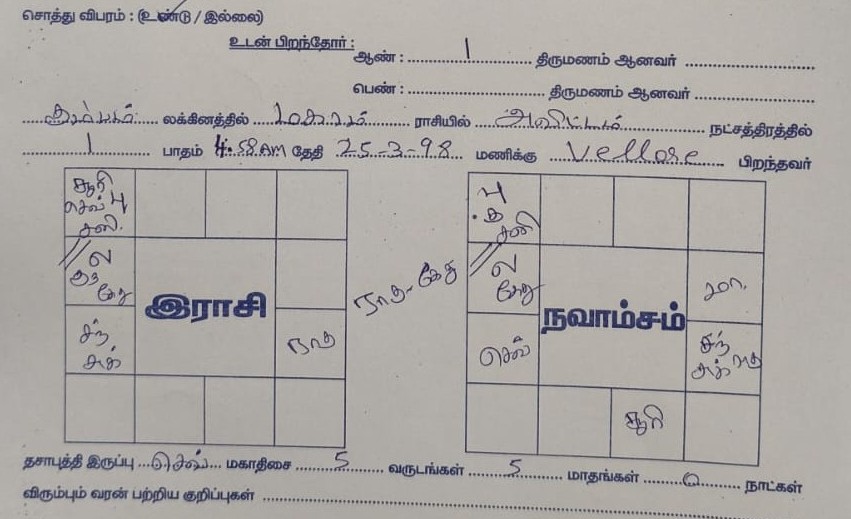 சொத்து விபரம் : (உண்டு / இல்லை)
உடன் பிறந்தோர் :
ஆண் : 1 திருமணம் ஆனவர்
பெண் : திருமணம் ஆனவர்
கும்பம் லக்கினத்தில் மகரம் ராசியில் அவிட்டம் நட்சத்திரத்தில்
1 பாதம் 4.58 AM தேதி 25-3-98 மணிக்கு Vellore பிறந்தவர்
சூரி
செவ் பு
சனி
ல
குரு
கேது
சந்
சுக்
ராகு
இராசி
ராகு-கேது
பு
சனி
ல
கேது
செவ்
சந்
சுக் ராகு
சூரி
நவாம்சம்
தசாபுத்தி இருப்பு செவ் மகாதிசை 5 வருடங்கள் 5 மாதங்கள் 0 நாட்கள்
விரும்பும் வரன் பற்றிய குறிப்புகள்